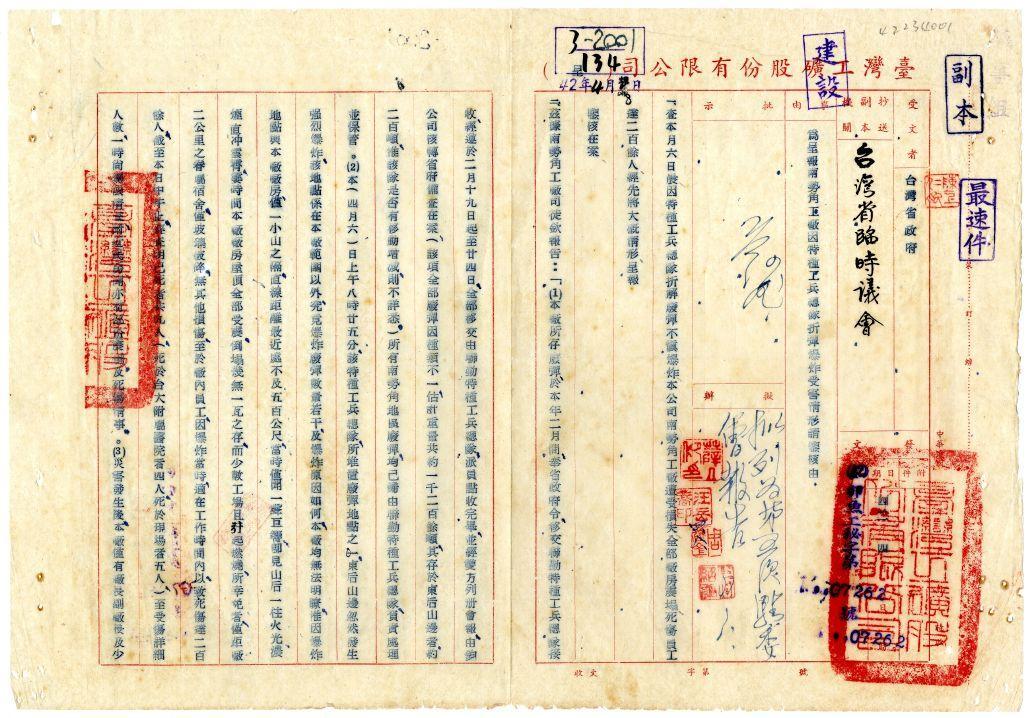 42234001
副本
最速件
建設
3-2001
134
42年4月8日
臺灣工礦股份有限公司(　)
受文者
台灣省政府
抄送
副本
機關
台灣省臨時議會
事由
為呈報南勢角工廠因特種工兵總隊拆彈爆炸受害情形請鑒核由
批示
擬辦
發文
附件
日期
07262
號
07262
「查本月六日晨因特種工兵總隊折解廢彈不慎爆炸本公司南勢角工廠遭受損失全部廠房震塌死傷員工
達二百餘人經先將大概情形呈報
鑒核在案
「茲據南勢角工廠司徒欽報告：「(1)本廠所存廢彈於本年二月間奉省政府令移交聯勤特種工兵總隊接
收經遵於二月十九日起至廿四日全部移交由聯勤特種工兵總隊派員點收完畢並經雙方列冊會報由鈞
公司核轉省府備查在案(該項全部廢彈因種類不一估計重量共約一千二百餘噸其存於東后山邊者約
二百噸惟該隊是否有移動增減則不詳悉)所有南勢角地區廢彈均已歸由聯勤特種工兵總隊負責處理
並保管。(2)本(四月六)日上午八時廿五分該特種工兵總隊所堆置廢彈地點之(一)東后山邊忽然發生
强烈爆炸該地點係在本廠範圍以外究竟爆炸廢彈數量若干及爆炸原因如何本廠均無法明瞭惟因爆炸
地點與本廠廠房僅一小山之隔直線距離最近處不及五百公尺當時僅聞一聲巨響即見山后一柱火光濃
煙直冲雲霄霎時間本廠廠房屋頂全部受震倒塌幾無一瓦之存而少數工場且
二公里之眷屬宿舍僅玻璃破碎無其他損傷至於廠內員工因爆炸當時適在工作時間內以致死傷達二百
餘人截至本日中午止查明已死者共九人(死於台大附屬醫院者四人死於現場者五人)至受傷詳細
人數一時尚
及死傷情事。(3)災害發生後本廠僅有廠長副廠長及少
收文　字第　號